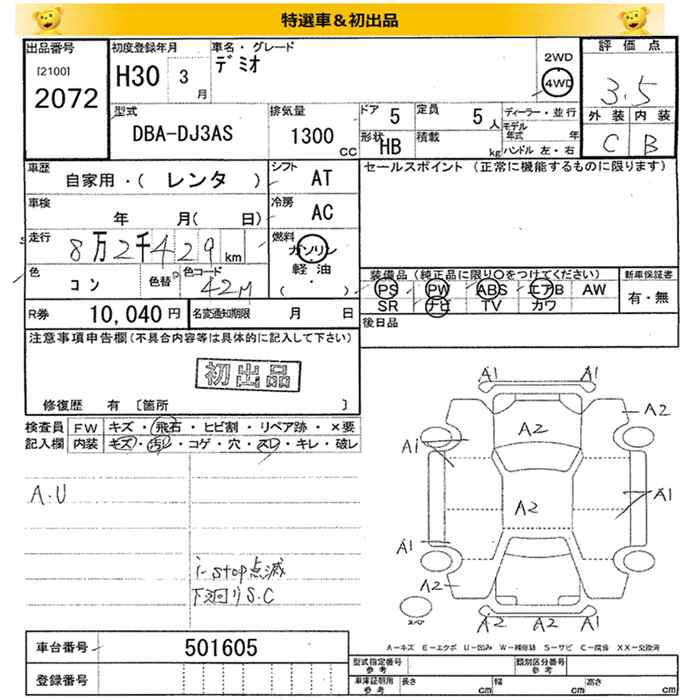 特選車＆初出品
出品番号 初度登録年月 車名・グレード 2WD 評価点
[2100] H30 3月 デミオ 4WD 3.5
2072
型式 排気量 ドア 5 定員 5人 ディーラー・並行 外装 内装
DBA-DJ3AS 1300CC 形状 HB 積載 kg モデル年式 年 C B
ハンドル 左・右
車歴 シフト AT セールスポイント (正常に機能するものに限ります)
自家用・( レンタ )
車検 冷房 AC
年 月( 日)
走行 燃料
8万2千429km ガソリン
色 色替 色コード 軽油 装備品 (純正品に限り○をつけてください) 新車保証書
コン 42M ( ・ ) PS PW ABS エアB AW 有・無
SR ナビ TV カワ
R券 10,040円 名変通知期限 月 日 後日品
注意事項申告欄(不具合内容等は具体的に記入して下さい)
初出品
修復歴 有 [箇所 ]
検査員 FW キズ・飛石・ヒビ割・リペア跡・×要
記入欄 内装 キズ・汚レ・コゲ・穴・スレ・キレ・破レ
A1 A1
A2 A2
A1
A.U
A2 A1
A1
i-stop点滅
下廻りS.C
A2
スペア A2 A2 A1
A－キズ E－エクボ U－凹み W－補修跡 S－サビ C－腐食 XX－交換済
車台番号 501605
型式指定番号 参考 類別区分番号 参考
登録番号 車庫証明用 参考 長さ cm 幅 cm 高さ cm